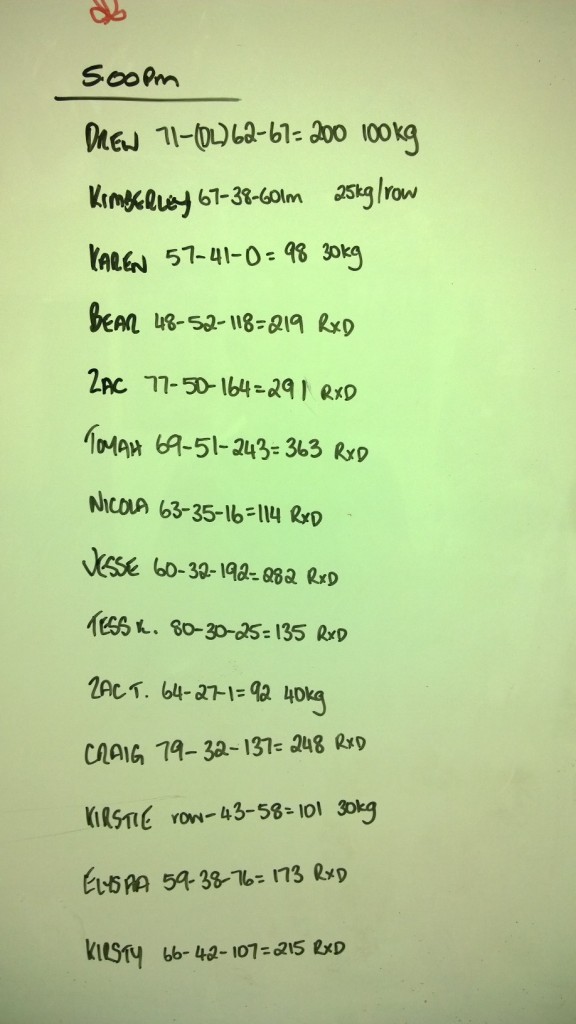 5:00Pm
DREW 71-(DL)62-67= 200 100kg
KIMBERLEY 67-38-601m 25kg/row
KAREN 57-41-0= 98 30kg
BEAR 48-52-118=219 RxD
ZAC 77-50-164=291 RxD
TOMAH 69-51-243=363 RxD
NICOLA 63-35-16=114 RxD
JESSE 60-32-192=282 RxD
TESS K. 80-30-25=135 RxD
ZAC T. 64-27-1=92 40kg
CRAIG 79-32-137=248 RxD
KIRSTIE row-43-58=101 30kg
59-38-76=173 RxD
KIRSTY 66-42-107=215 RxD